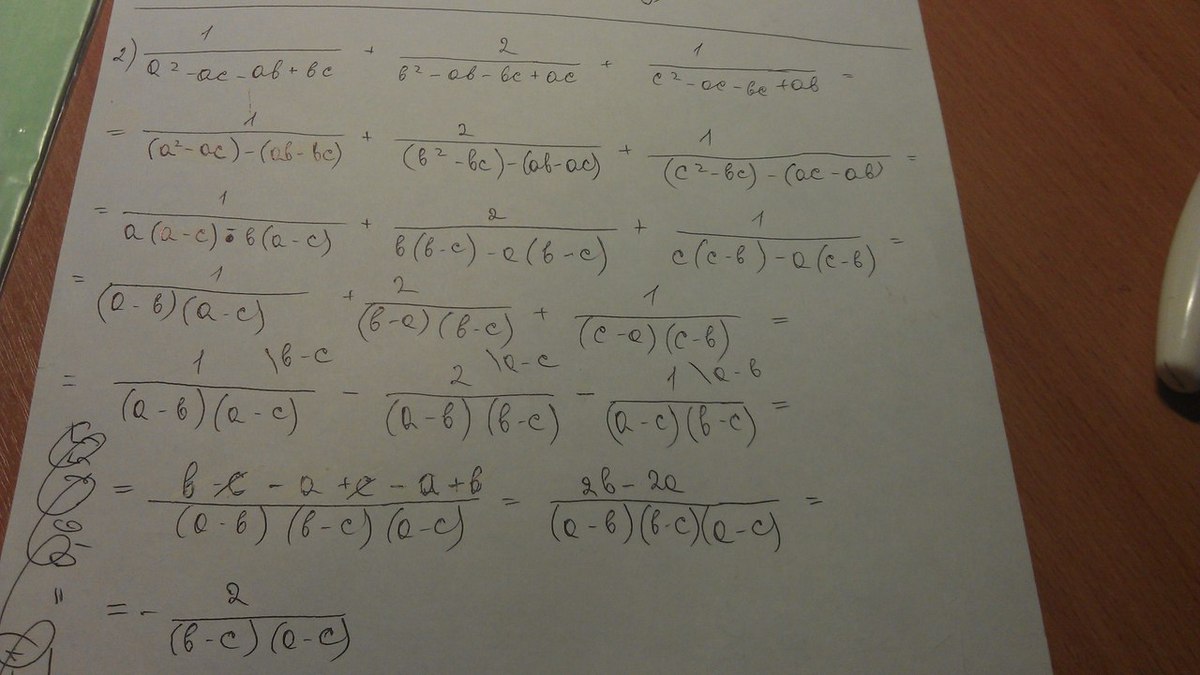 2) 1/(a² - ac - ab + bc) + 2/(b² - ab - bc + ac) + 1/(c² - ac - bc + ab) =
= 1/((a² - ac) - (ab - bc)) + 2/((b² - bc) - (ab - ac)) + 1/((c² - bc) - (ac - ab)) =
= 1/(a(a - c) - b(a - c)) + 2/(b(b - c) - a(b - c)) + 1/(c(c - b) - a(c - b)) =
= 1/((a - b)(a - c)) + 2/((b - a)(b - c)) + 1/((c - a)(c - b)) =
= 1\b-c/((a - b)(a - c)) - 2\a-c/((a - b)(b - c)) - 1\a-b/((a - c)(b - c)) =
= (b - c - a + c - a + b)/((a - b)(b - c)(a - c)) = (2b - 2a)/((a - b)(b - c)(a - c)) =
= - 2/((b - c)(a - c))